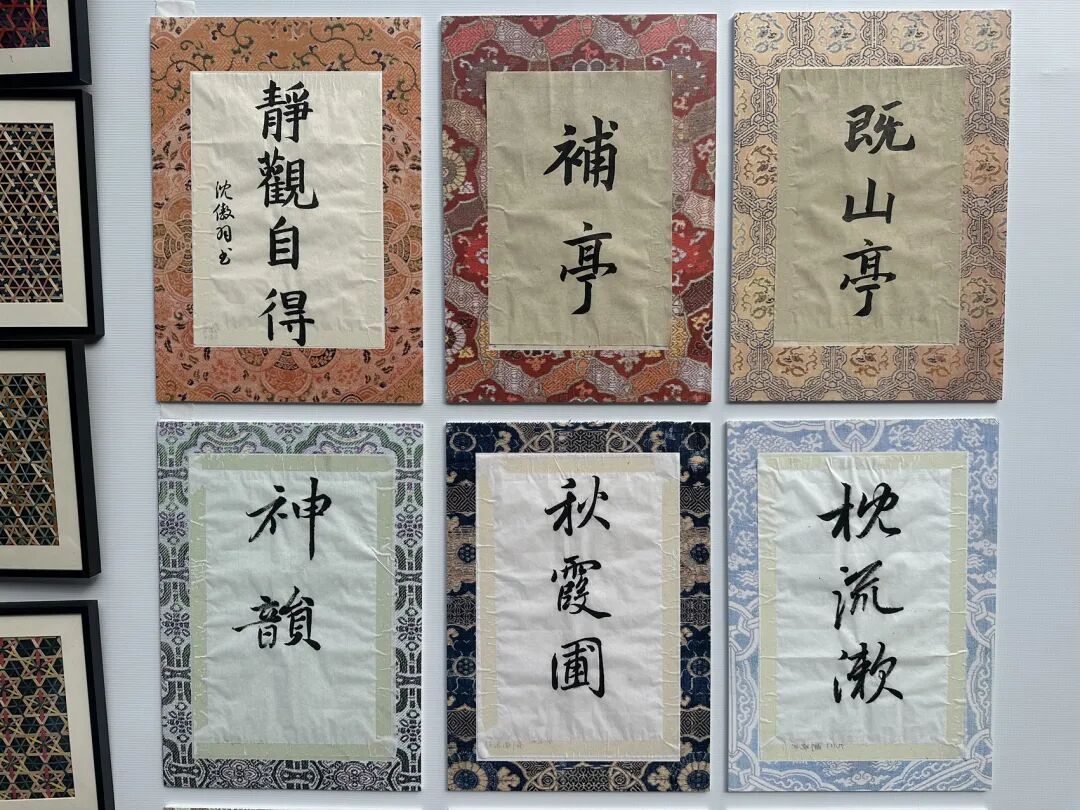 靜觀自得
沈傲羽书
補亭
既山亭
神韻
秋霞圃
枕流漱